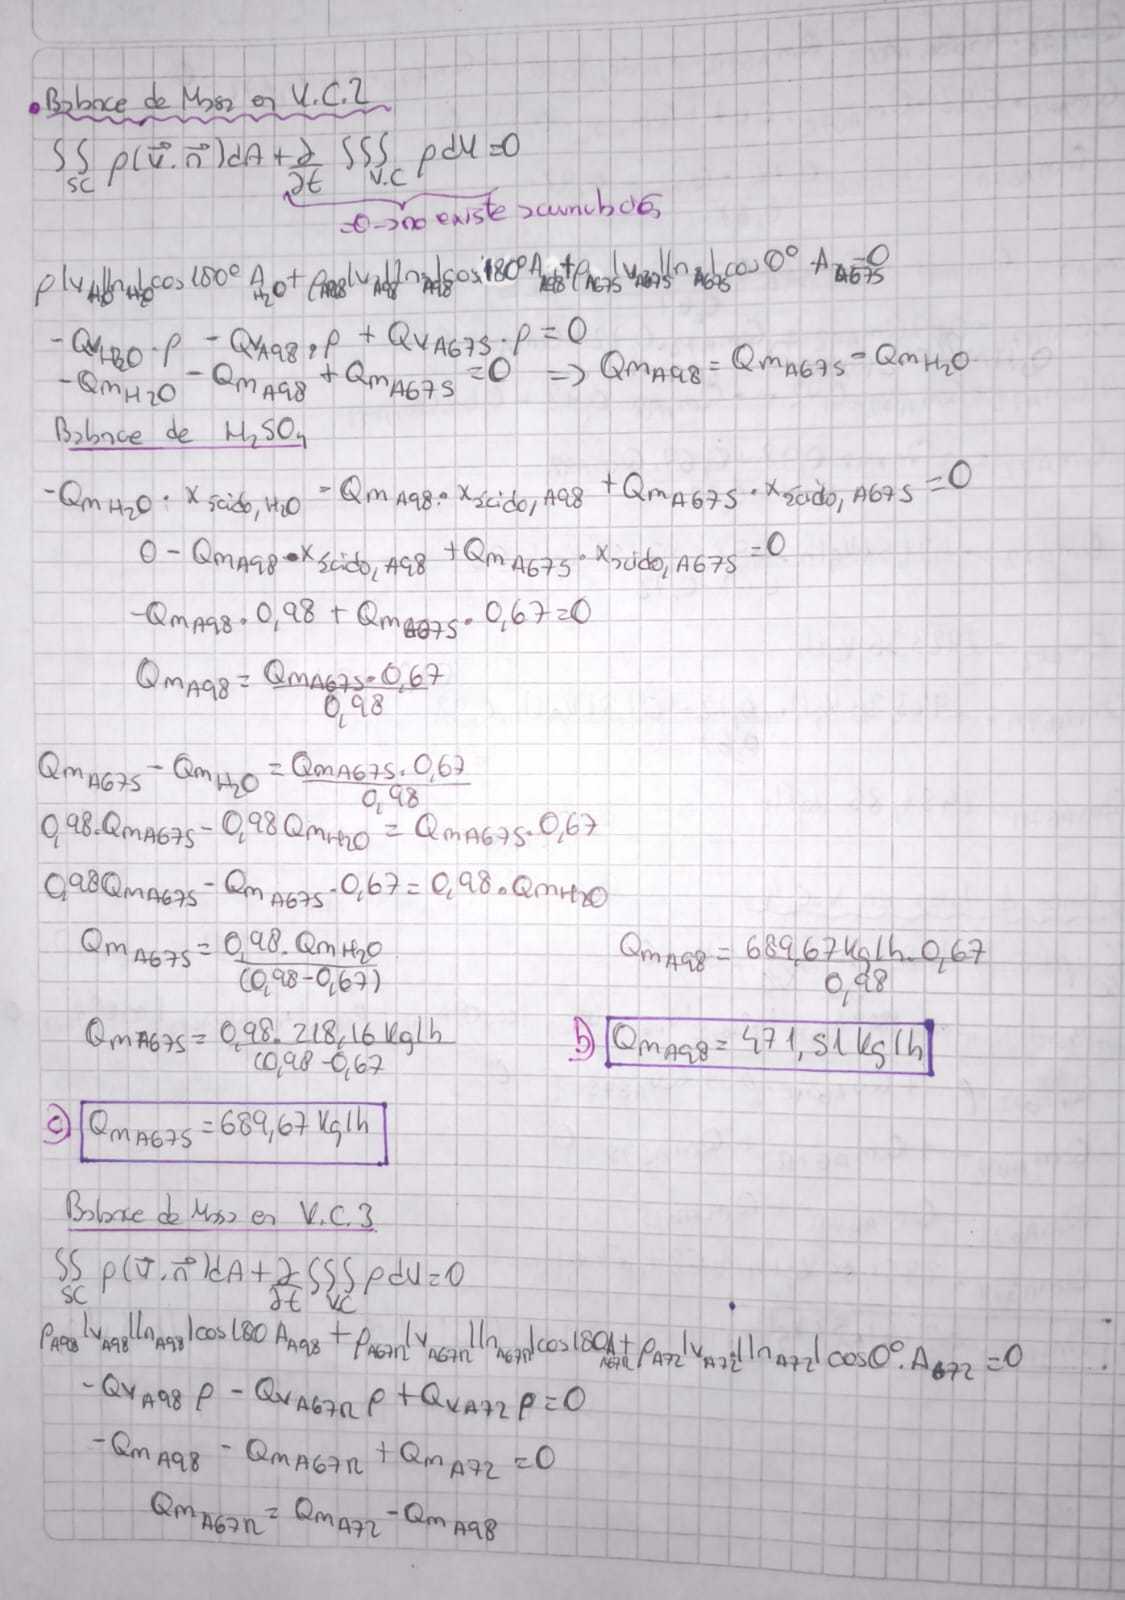 • Balance de Masa en V.C.2
∬_SC ρ(v⃗.n⃗)dA + ∂/∂t ∭_V.C ρ dU = 0
=0 → no existe acumulación
ρ|v_H2O||n_H2O|cos180° A_H2O + ρ_A98|v_A98||n_A98|cos180° A_A98 + ρ_A67S|v_A67S||n_A67S|cos0° A_A67S = 0
-Qv_H2O . ρ - Qv_A98 . ρ + Qv_A67S . ρ = 0
-Qm_H2O - Qm_A98 + Qm_A67S = 0 => Qm_A98 = Qm_A67S - Qm_H2O
Balance de H₂SO₄
-Qm_H2O . x_ácido,H2O - Qm_A98 . x_ácido,A98 + Qm_A67S . x_ácido,A67S = 0
0 - Qm_A98 . x_ácido,A98 + Qm_A67S . x_ácido,A67S = 0
-Qm_A98 . 0,98 + Qm_A67S . 0,67 = 0
Qm_A98 = Qm_A67S . 0,67 / 0,98
Qm_A67S - Qm_H2O = Qm_A67S . 0,67 / 0,98
0,98.Qm_A67S - 0,98 Qm_H2O = Qm_A67S . 0,67
0,98Qm_A67S - Qm_A67S . 0,67 = 0,98 . Qm_H2O
Qm_A67S = 0,98 . Qm_H2O / (0,98-0,67)
Qm_A98 = 689,67 kg/h . 0,67 / 0,98
Qm_A67S = 0,98 . 218,16 kg/h / (0,98-0,67
b) Qm_A98 = 471,51 kg/h
c) Qm_A67S = 689,67 kg/h
Balance de Masa en V.C.3
∬_SC ρ(v⃗.n⃗)dA + ∂/∂t ∭_VC ρ dU = 0
ρ_A98|v_A98||n_A98|cos180 A_A98 + ρ_A67R|v_A67R||n_A67R|cos180 A_A67R + ρ_A72|v_A72||n_A72|cos0° . A_A72 = 0
-Qv_A98 ρ - Qv_A67R ρ + Qv_A72 ρ = 0
-Qm_A98 - Qm_A67R + Qm_A72 = 0
Qm_A67R = Qm_A72 - Qm_A98